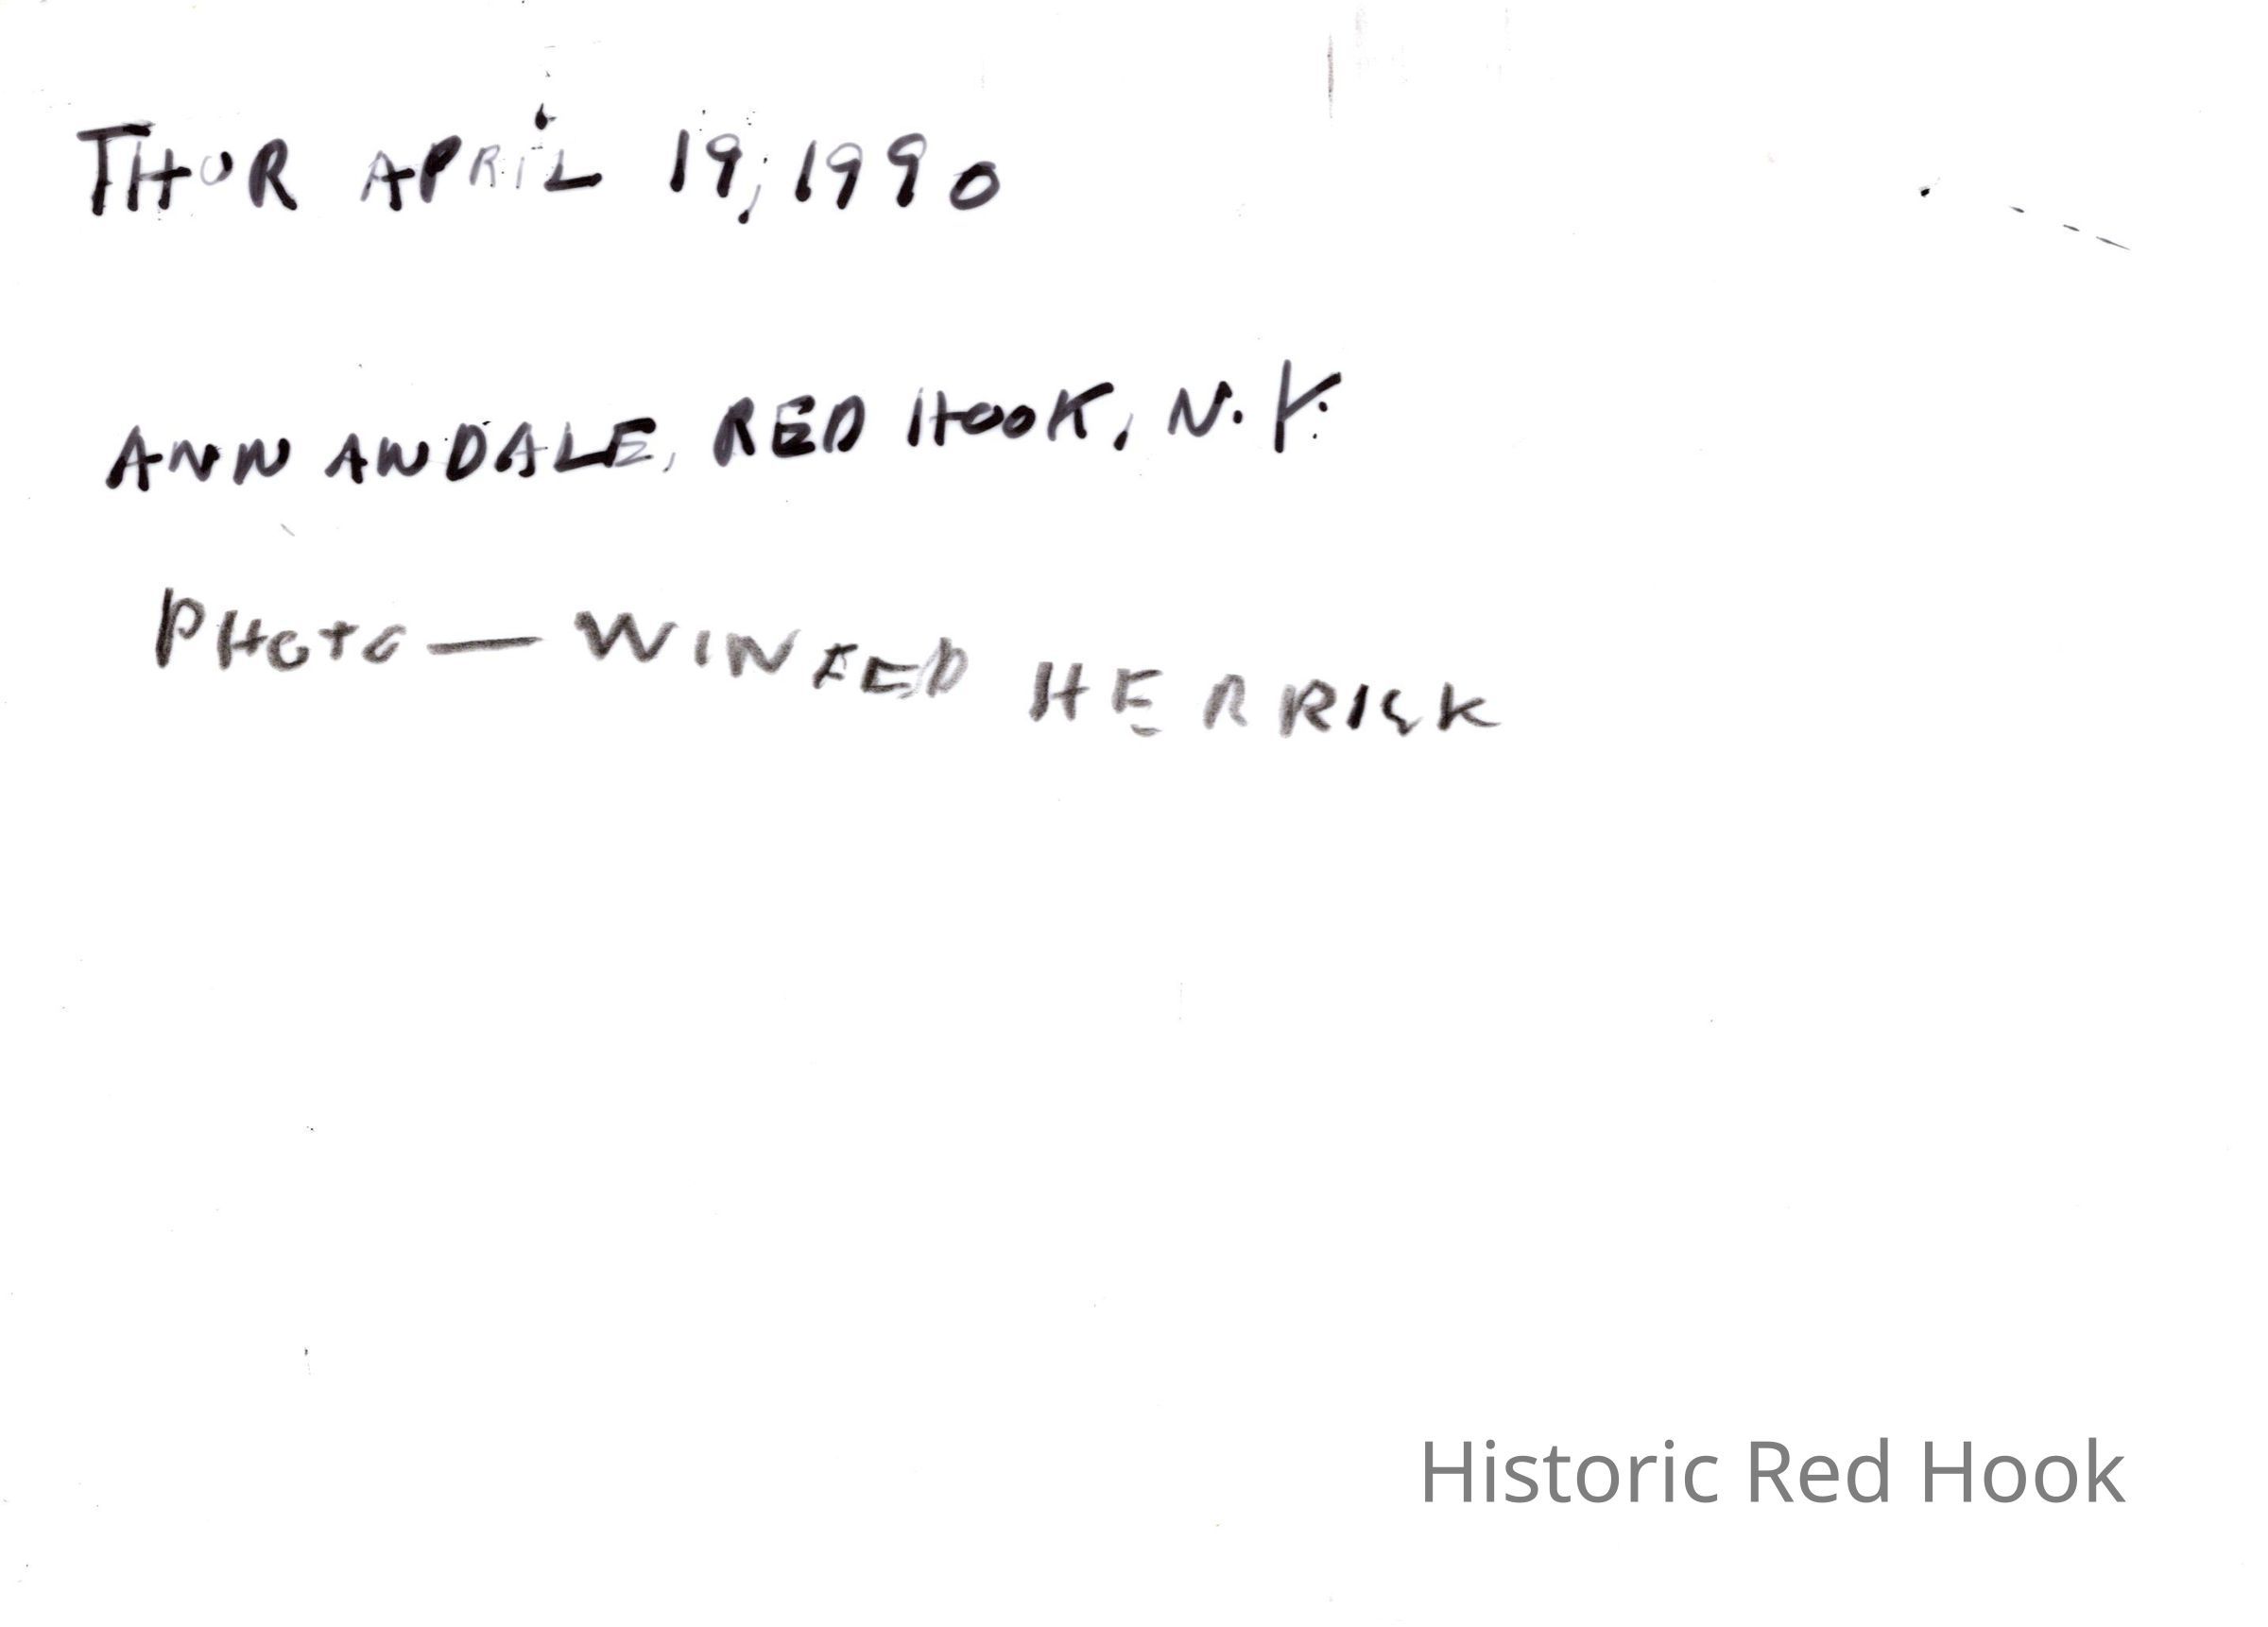 THOR APRIL 19, 1990
ANN ANDALE, RED HOOK, N.Y.
PHOTO — WINFED HERRICK
Historic Red Hook